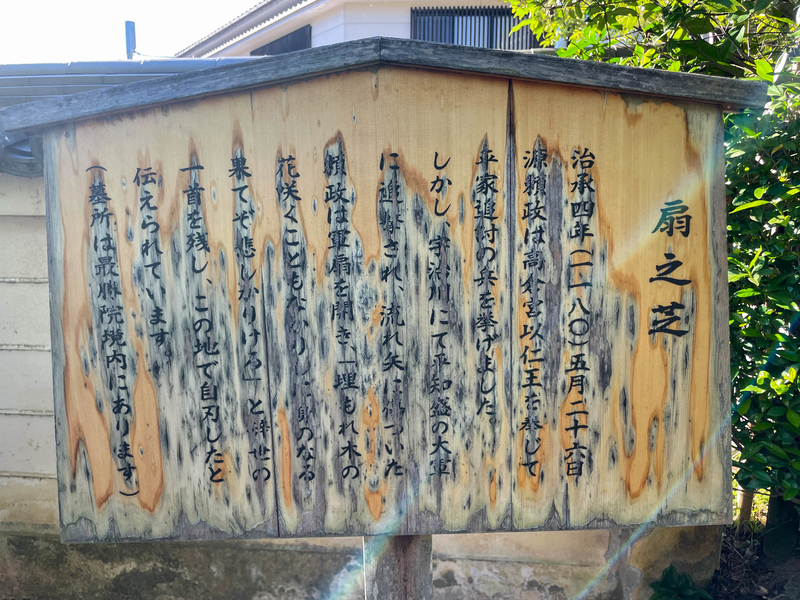 扇之芝
治承四年(一一八〇)五月二十六日
源頼政は高倉宮以仁王を奉じて
平家追討の兵を挙げました。
しかし、宇治川にて平知盛の大軍
に追撃され、流れ矢に傷ついた
頼政は軍扇を開き、「埋もれ木の
花咲くこともなかりしに身のなる
果てぞ悲しかりける」と辞世の
一首を残し、この地で自刃したと
伝えられています。
(墓所は最勝院境内にあります)